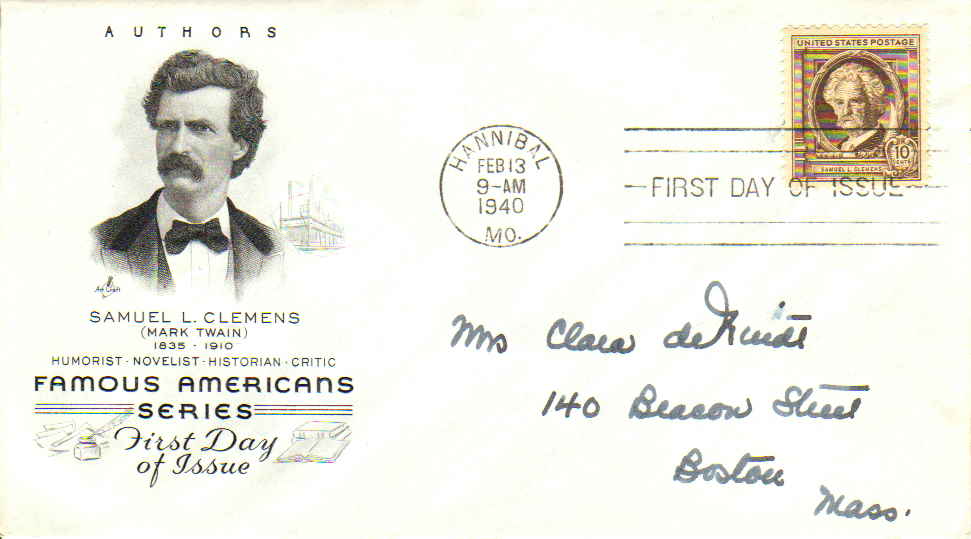 AUTHORS
Art Craft
SAMUEL L. CLEMENS
(MARK TWAIN)
1835 - 1910
HUMORIST · NOVELIST · HISTORIAN · CRITIC
FAMOUS AMERICANS
SERIES
First Day
of Issue
HANNIBAL
FEB 13
9-AM
1940
MO.
UNITED STATES POSTAGE
10
CENTS
SAMUEL L. CLEMENS
FIRST DAY OF ISSUE
Mrs Clara de
140 Beacon Street
Boston
Mass.